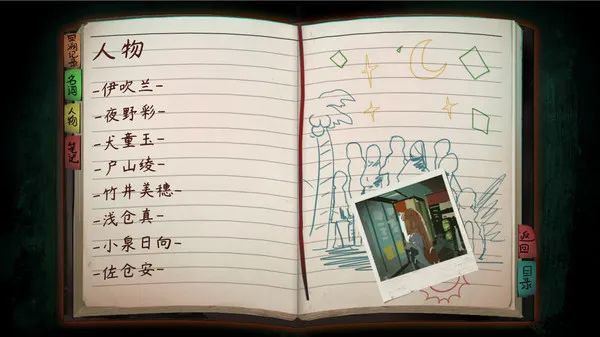 人物
-伊吹兰-
-夜野彩-
-犬童玉-
-户山绫-
-竹井美穗-
-浅仓真-
-小泉日向-
-佐仓安-
名词
人物
笔记
返回
目录